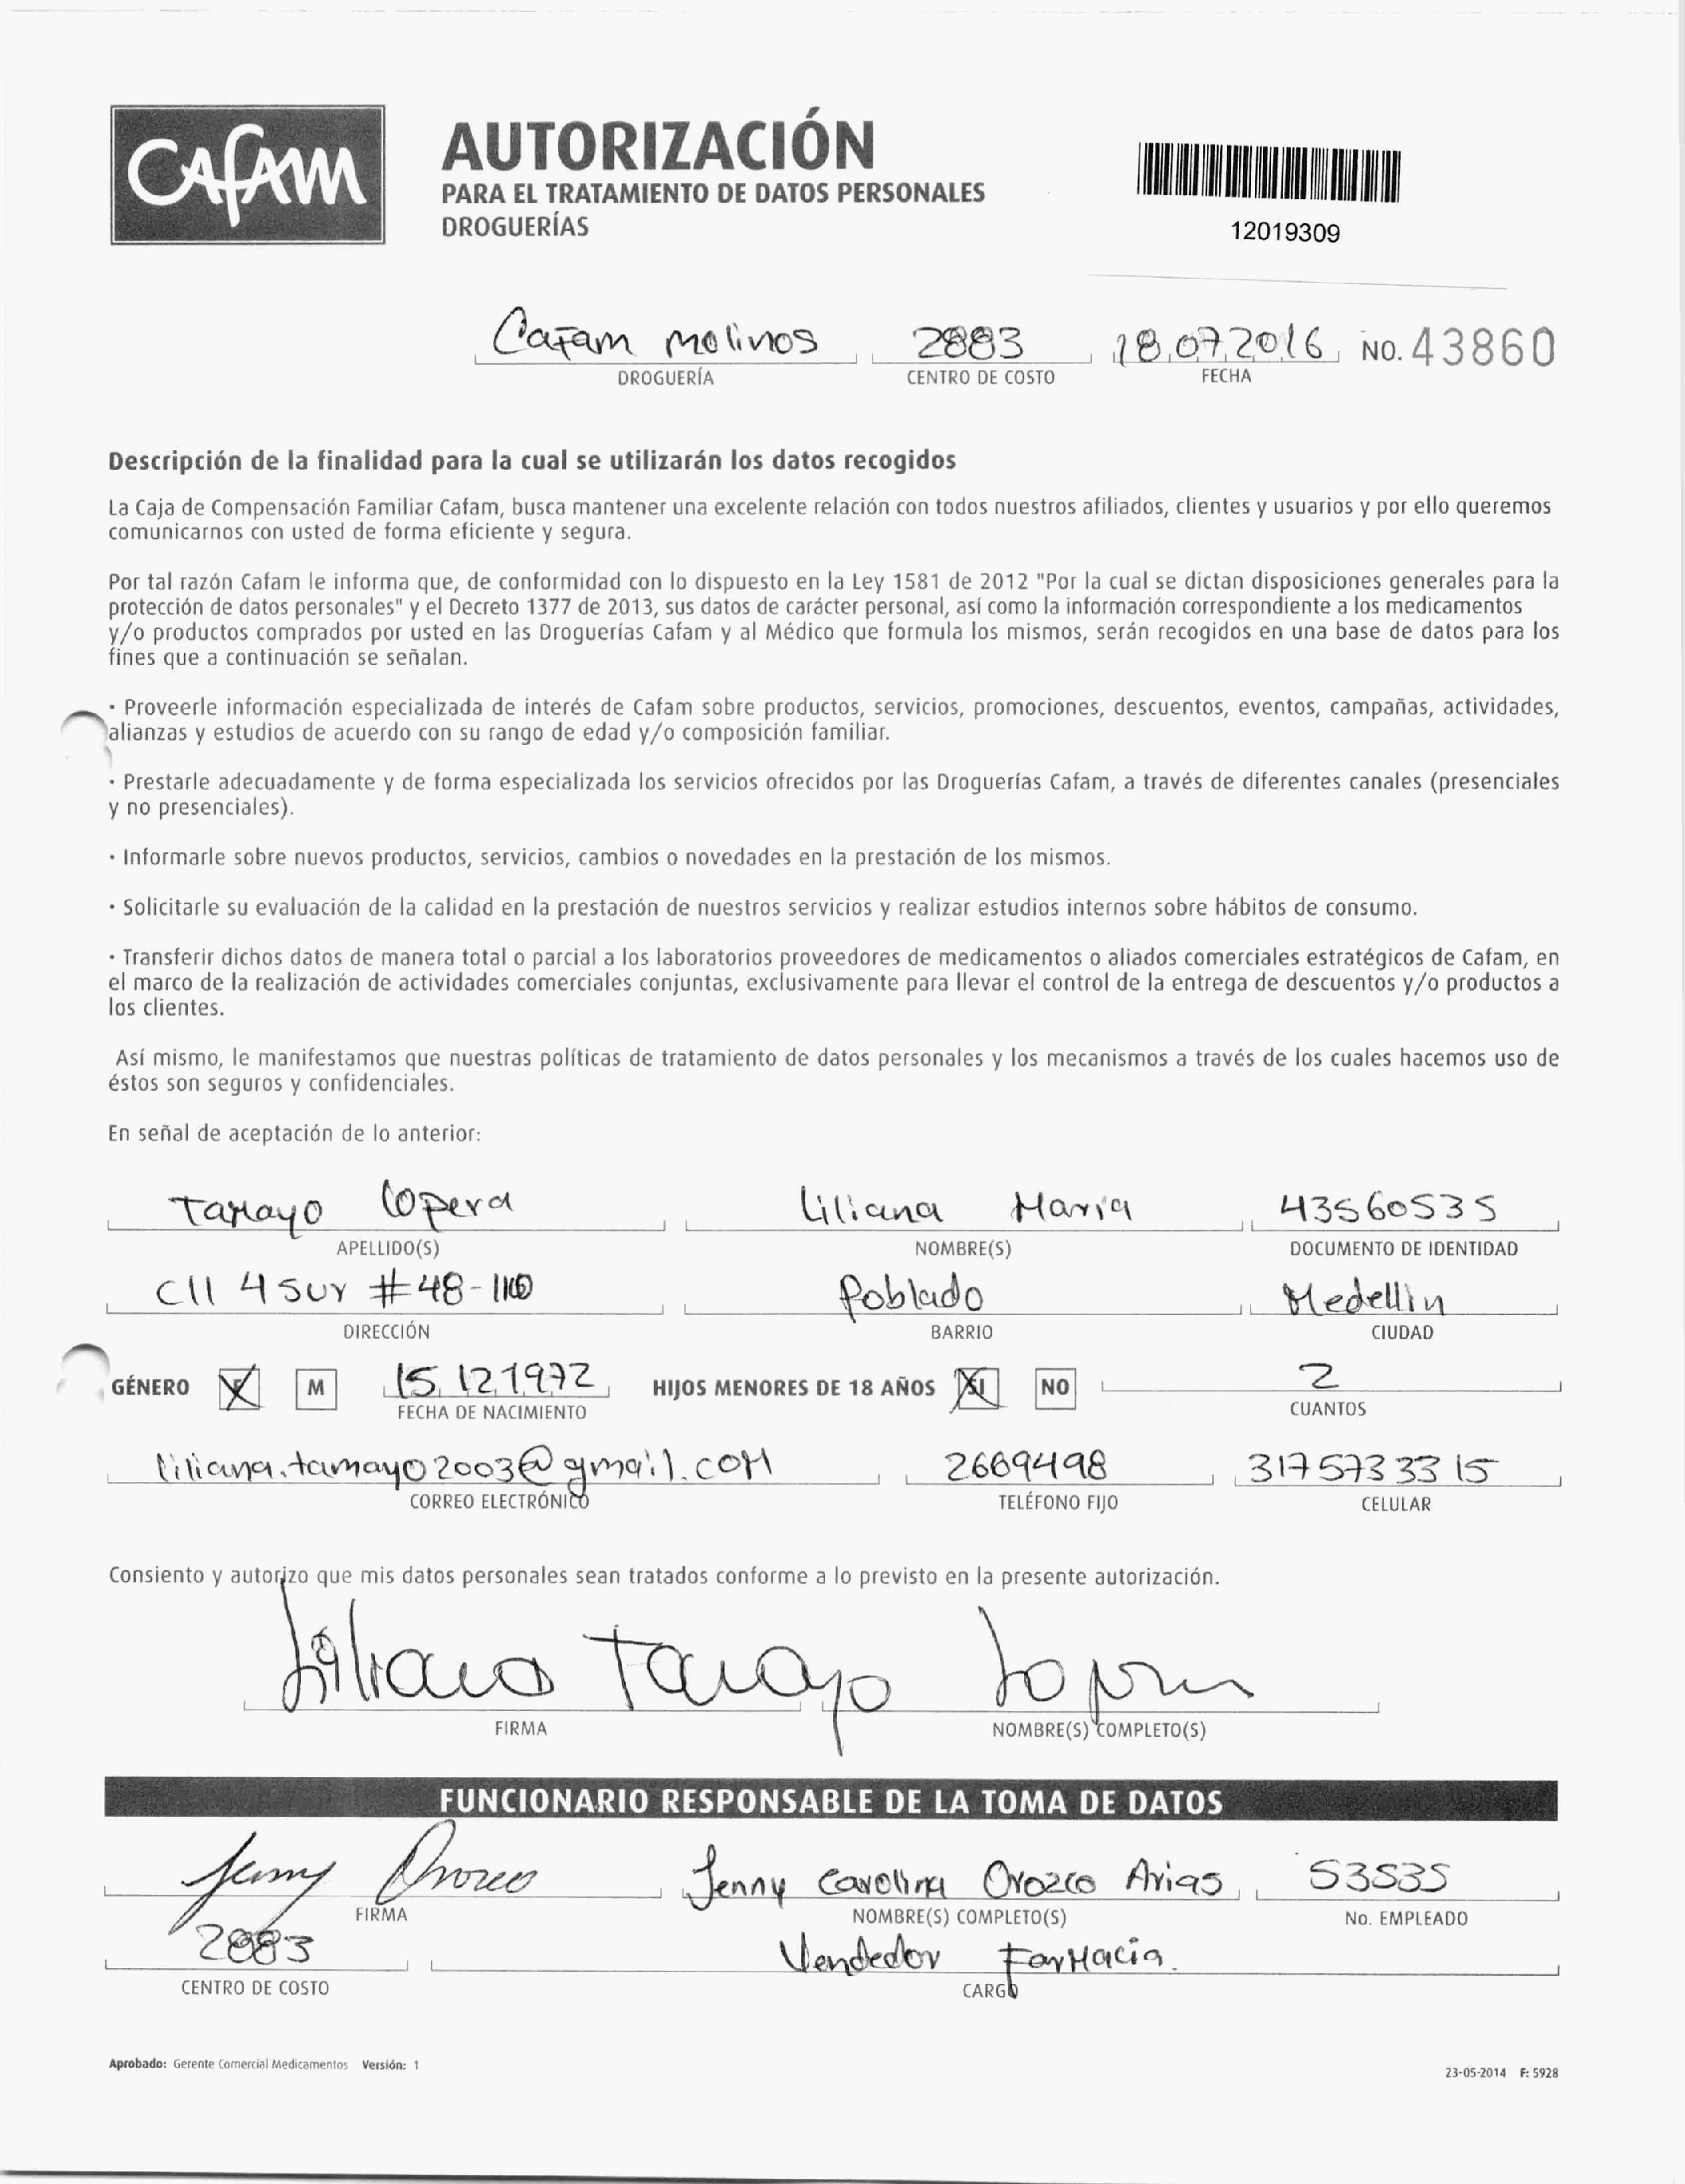 Cafam
AUTORIZACIÓN
PARA EL TRATAMIENTO DE DATOS PERSONALES
DROGUERÍAS
12019309
Cafam Molinos 2883 18.07.2016 NO. 43860
DROGUERÍA CENTRO DE COSTO FECHA
Descripción de la finalidad para la cual se utilizarán los datos recogidos
La Caja de Compensación Familiar Cafam, busca mantener una excelente relación con todos nuestros afiliados, clientes y usuarios y por ello queremos
comunicarnos con usted de forma eficiente y segura.
Por tal razón Cafam le informa que, de conformidad con lo dispuesto en la Ley 1581 de 2012 "Por la cual se dictan disposiciones generales para la
protección de datos personales" y el Decreto 1377 de 2013, sus datos de carácter personal, así como la información correspondiente a los medicamentos
y/o productos comprados por usted en las Droguerías Cafam y al Médico que formula los mismos, serán recogidos en una base de datos para los
fines que a continuación se señalan.
· Proveerle información especializada de interés de Cafam sobre productos, servicios, promociones, descuentos, eventos, campañas, actividades,
alianzas y estudios de acuerdo con su rango de edad y/o composición familiar.
· Prestarle adecuadamente y de forma especializada los servicios ofrecidos por las Droguerías Cafam, a través de diferentes canales (presenciales
y no presenciales).
· Informarle sobre nuevos productos, servicios, cambios o novedades en la prestación de los mismos.
· Solicitarle su evaluación de la calidad en la prestación de nuestros servicios y realizar estudios internos sobre hábitos de consumo.
· Transferir dichos datos de manera total o parcial a los laboratorios proveedores de medicamentos o aliados comerciales estratégicos de Cafam, en
el marco de la realización de actividades comerciales conjuntas, exclusivamente para llevar el control de la entrega de descuentos y/o productos a
los clientes.
Así mismo, le manifestamos que nuestras políticas de tratamiento de datos personales y los mecanismos a través de los cuales hacemos uso de
éstos son seguros y confidenciales.
En señal de aceptación de lo anterior:
Tamayo Lopera Liliana Maria 43560535
APELLIDO(S) NOMBRE(S) DOCUMENTO DE IDENTIDAD
Cll 4 sur #48- Poblado Medellin
DIRECCIÓN BARRIO CIUDAD
GÉNERO F M 15.12.1972 HIJOS MENORES DE 18 AÑOS SI NO 2
FECHA DE NACIMIENTO CUANTOS
liliana.tamayo2003@gmail.com 2669498 3175733315
CORREO ELECTRÓNICO TELÉFONO FIJO CELULAR
Consiento y autorizo que mis datos personales sean tratados conforme a lo previsto en la presente autorización.
Liliana Tamayo Lopera
FIRMA NOMBRE(S) COMPLETO(S)
FUNCIONARIO RESPONSABLE DE LA TOMA DE DATOS
Jenny Orozco Jenny Carolina Orozco Arias 53535
FIRMA NOMBRE(S) COMPLETO(S) No. EMPLEADO
2883 Vendedor Farmacia.
CENTRO DE COSTO CARGO
Aprobado: Gerente Comercial Medicamentos Versión: 1
23-05-2014 F: 5928